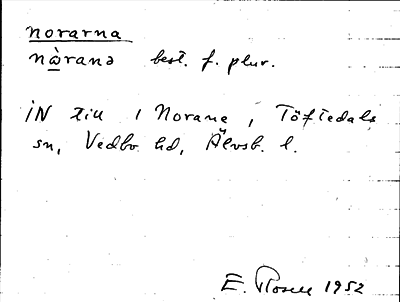 norarna
nòranə best. f. plur.
iN till 1 Norane, Töftedals
sn, Vedbo hd, Älvsb. l.
E. Rosell 1952